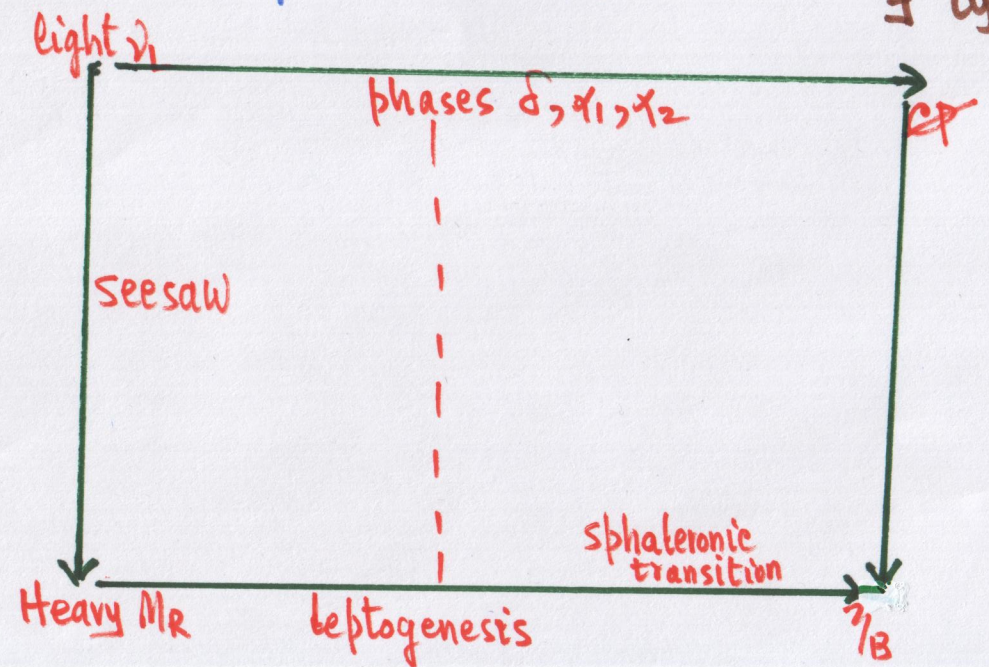 light ν₁
phases δ, α₁, α₂
CP
seesaw
sphaleronic
transition
Heavy M_R
leptogenesis
η_B